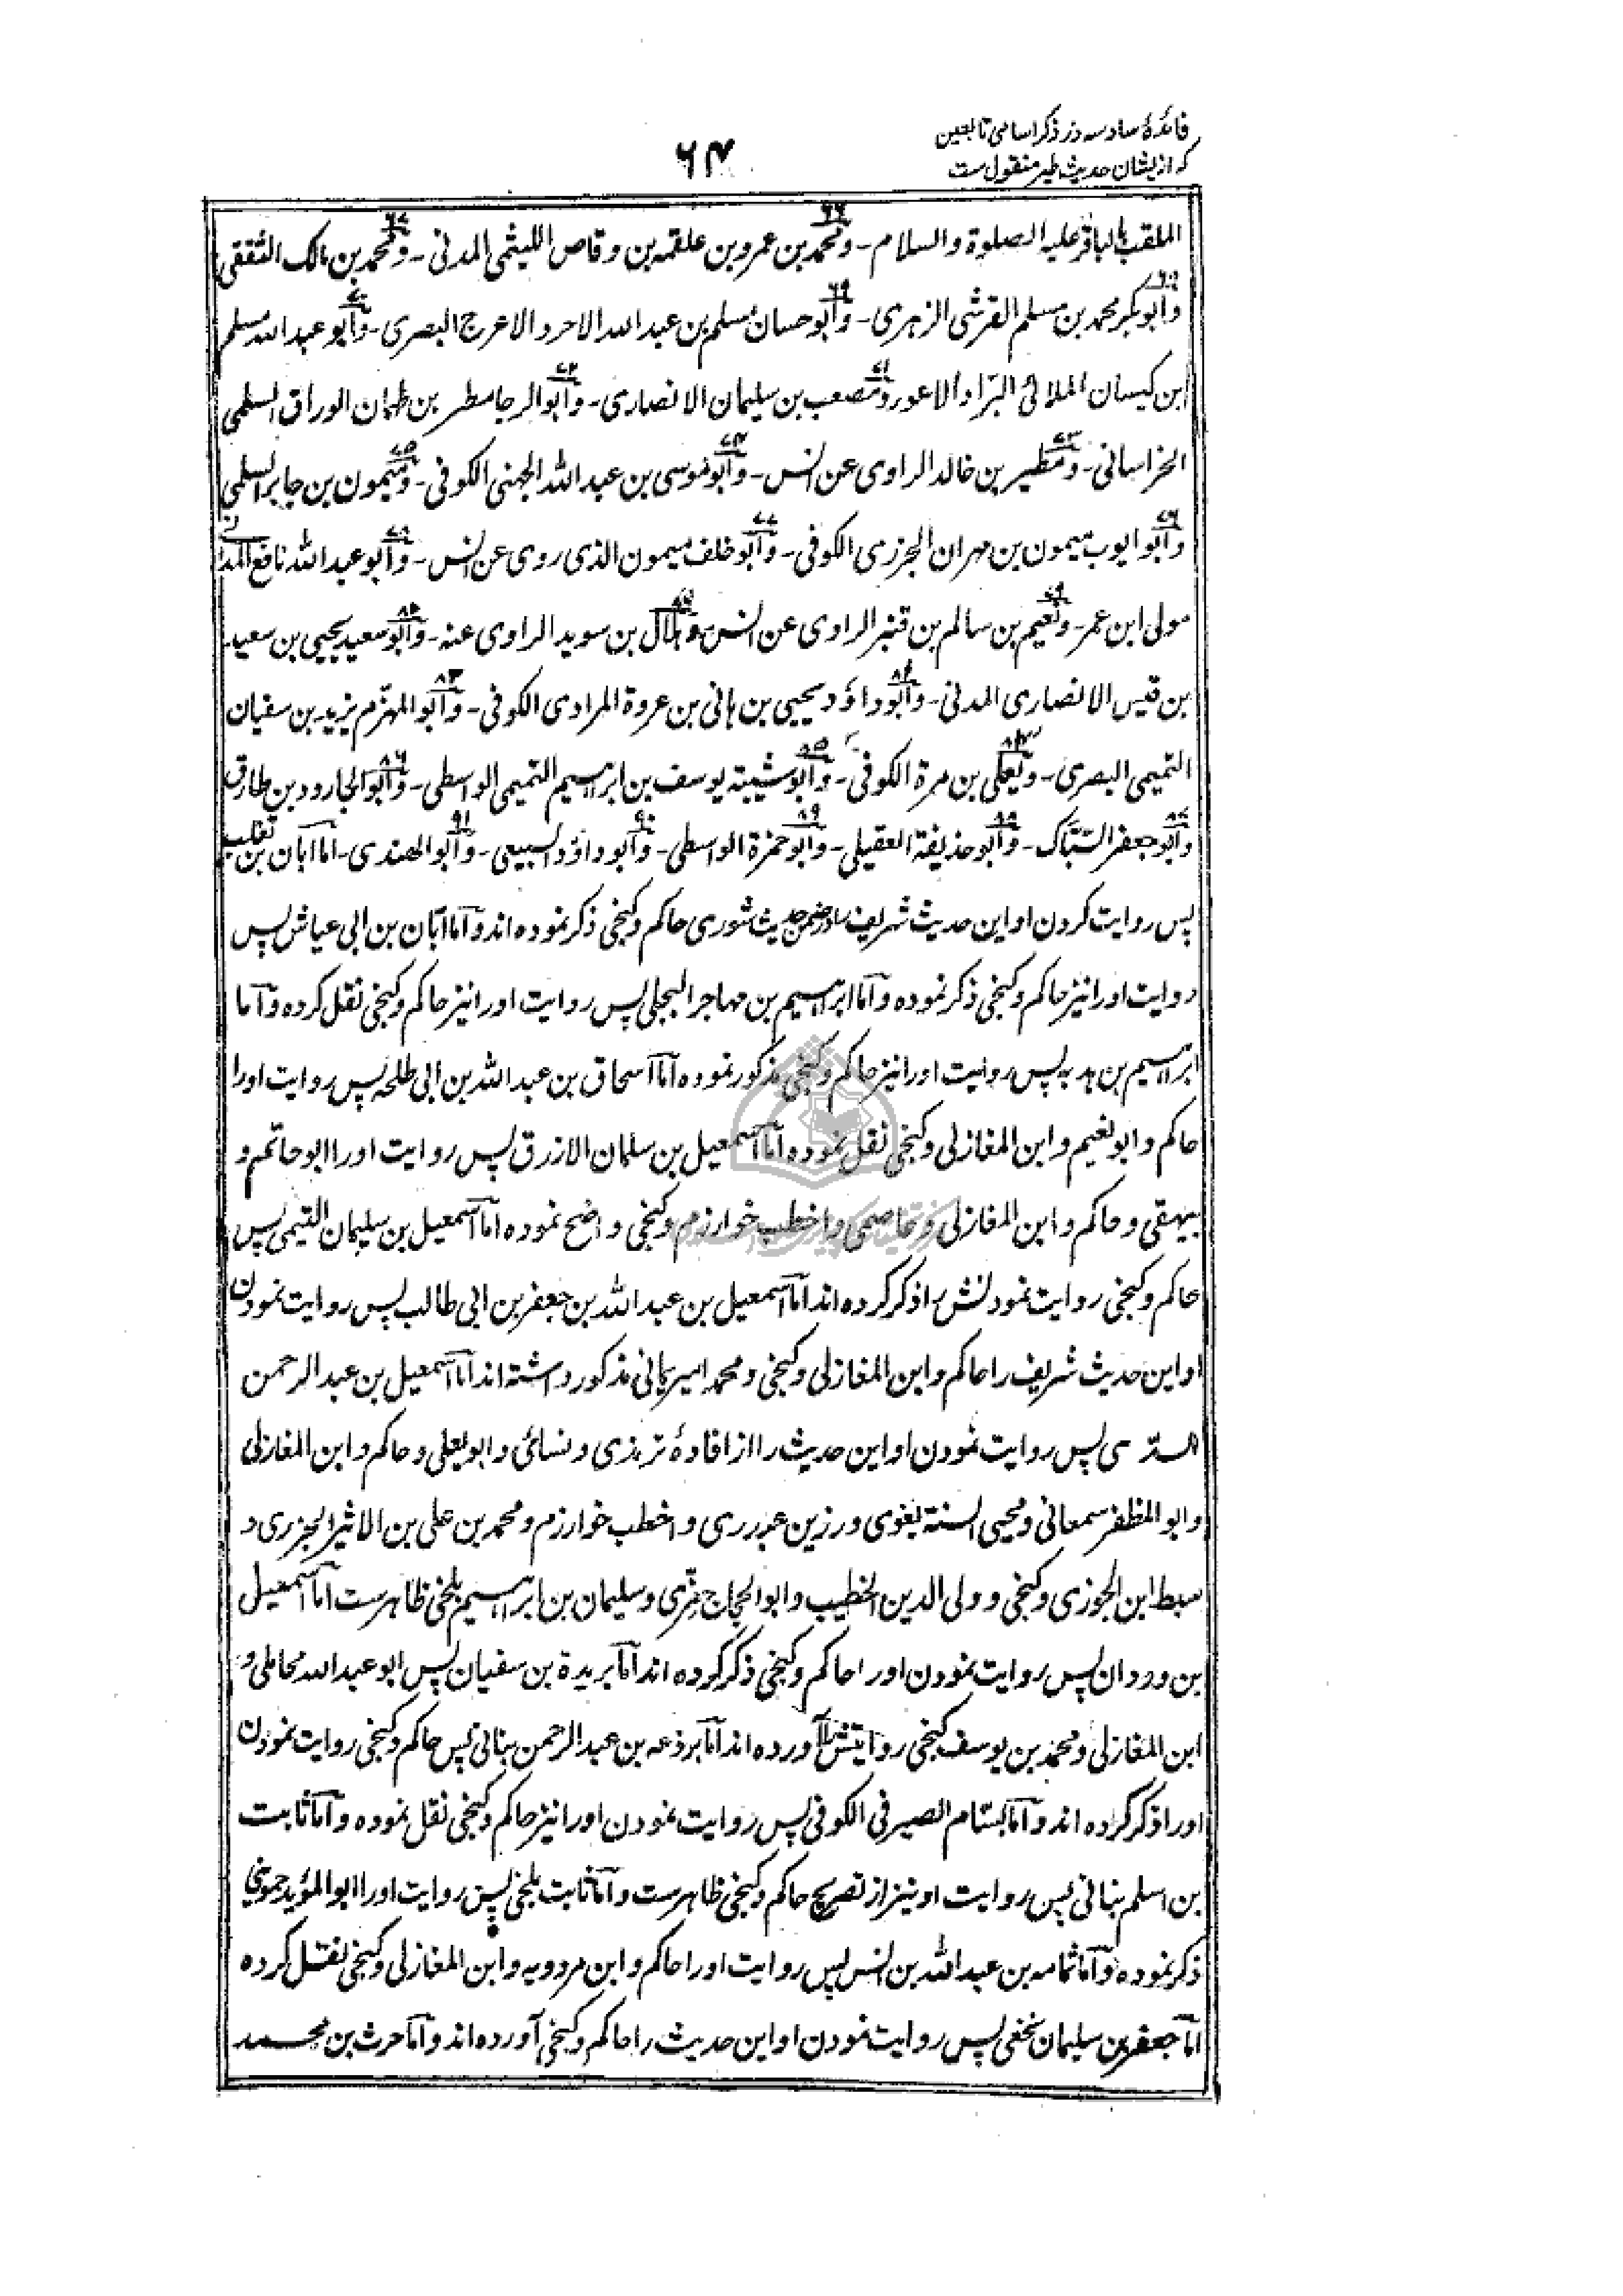 فائدۀ سادسه در ذکر اسامی تابعین
که از ایشان حدیث طیر منقول ست
۶۴
الملقب بالباقر علیه الصلوة والسلام - ۶۶ ومحمد بن عمرو بن علقمه بن وقاص اللیثی المدنی - ۶۷ ومحمد بن مالک الثقفی
۶۸ وابوبکر محمد بن مسلم القرشی الزهری - ۶۹ وابو حسان مسلم بن عبد الله الاحرد الاعرج البصری - ۷۰ وابو عبد الله مسلم
ابن کیسان الملائی البرّاد الاعور ۷۱ ومصعب بن سلیمان الانصاری - ۷۲ وابو الرجا مطر بن طهمان الوراق السلمی
الخراسانی - ۷۳ ومطیر بن خالد الراوی عن انس - ۷۴ وابو موسی بن عبد الله الجهنی الکوفی - ۷۵ ومیمون بن جابر السلمی
۷۶ وابو ایوب میمون بن مهران الجزری الکوفی - ۷۷ وابو خلف میمون الذی روی عن انس - ۷۸ وابو عبد الله نافع المدنی
مولی ابن عمر - ۷۹ ونعیم بن سالم بن قنبر الراوی عن انس ۸۰ وهلال بن سوید الراوی عنه - ۸۱ وابو سعید یحیی بن سعید
بن قیس الانصاری المدنی - ۸۲ وابو داؤد یحیی بن هانی بن عروة المرادی الکوفی - ۸۳ وابو المهزّم یزید بن سفیان
التمیمی البصری - ۸۴ ویعلی بن مرة الکوفی - ۸۵ وابو شیبته یوسف بن ابراهیم التمیمی الواسطی - ۸۶ وابو الجارود بن طارق
۸۷ وابو جعفر السبّاک - ۸۸ وابو حذیفة العقیلی - ۸۹ وابو حمزة الواسطی - ۹۰ وابو داؤد السبیعی - ۹۱ وابو الهندی - اما ابان بن تغلب
پس روایت کردن او این حدیث شریف را در ضمن حدیث شوری حاکم و کنجی ذکر نموده اند و اما ابان بن ابی عیاش پس
روایت او را نیز حاکم و کنجی ذکر نموده و اما ابراهیم بن مهاجر البجلی پس روایت او را نیز حاکم و کنجی نقل کرده و اما
ابراهیم بن هدبه پس روایت او را نیز حاکم و کنجی مذکور نموده اما اسحاق بن عبد الله بن ابی طلحه پس روایت او را
حاکم و ابو نعیم و ابن المغازلی و کنجی نقل نموده اما اسمعیل بن سلمان الازرق پس روایت او را ابو حاتم و
بیهقی و حاکم و ابن المغازلی و عاصمی و اخطب خوارزم و کنجی واضح نموده اما اسمعیل بن سلیمان التیمی پس
حاکم و کنجی روایت نمودنش را ذکر کرده اند اما اسمعیل بن عبد الله بن جعفر بن ابی طالب پس روایت نمودن
او این حدیث شریف را حاکم و ابن المغازلی و کنجی و محمد امیر یمانی مذکور داشته اند اما اسمعیل بن عبد الرحمن
السدّی پس روایت نمودن او این حدیث را از افادۀ ترمذی و نسائی و ابو یعلی و حاکم و ابن المغازلی
و ابو المظفر سمعانی و محیی السنة بغوی و رزین عبدری و اخطب خوارزم و محمد بن علی بن الاثیر الجزری و
سبط ابن الجوزی و کنجی و ولی الدین الخطیب و ابو الحجاج مزّی و سلیمان بن ابراهیم بلخی ظاهرست اما اسمعیل
بن وردان پس روایت نمودن او را حاکم و کنجی ذکر کرده اند اما بریدة بن سفیان پس ابو عبد الله محاملی و
ابن المغازلی و محمد بن یوسف کنجی روایتش را آورده اند اما برذعه بن عبد الرحمن بنانی پس حاکم و کنجی روایت نمودن
او را ذکر کرده اند و اما بسّام الصیرفی الکوفی پس روایت نمودن او را نیز حاکم و کنجی نقل نموده و اما ثابت
بن اسلم بنانی پس روایت او نیز از تصریح حاکم و کنجی ظاهرست و اما ثابت بلخی پس روایت او را ابو المؤید حموینی
ذکر نموده و اما ثمامه بن عبد الله بن انس پس روایت او را حاکم و ابن مردویه و ابن المغازلی و کنجی نقل کرده
اما جعفر بن سلیمان نخعی پس روایت نمودن او این حدیث را حاکم و کنجی آورده اند و اما حرث بن محمد